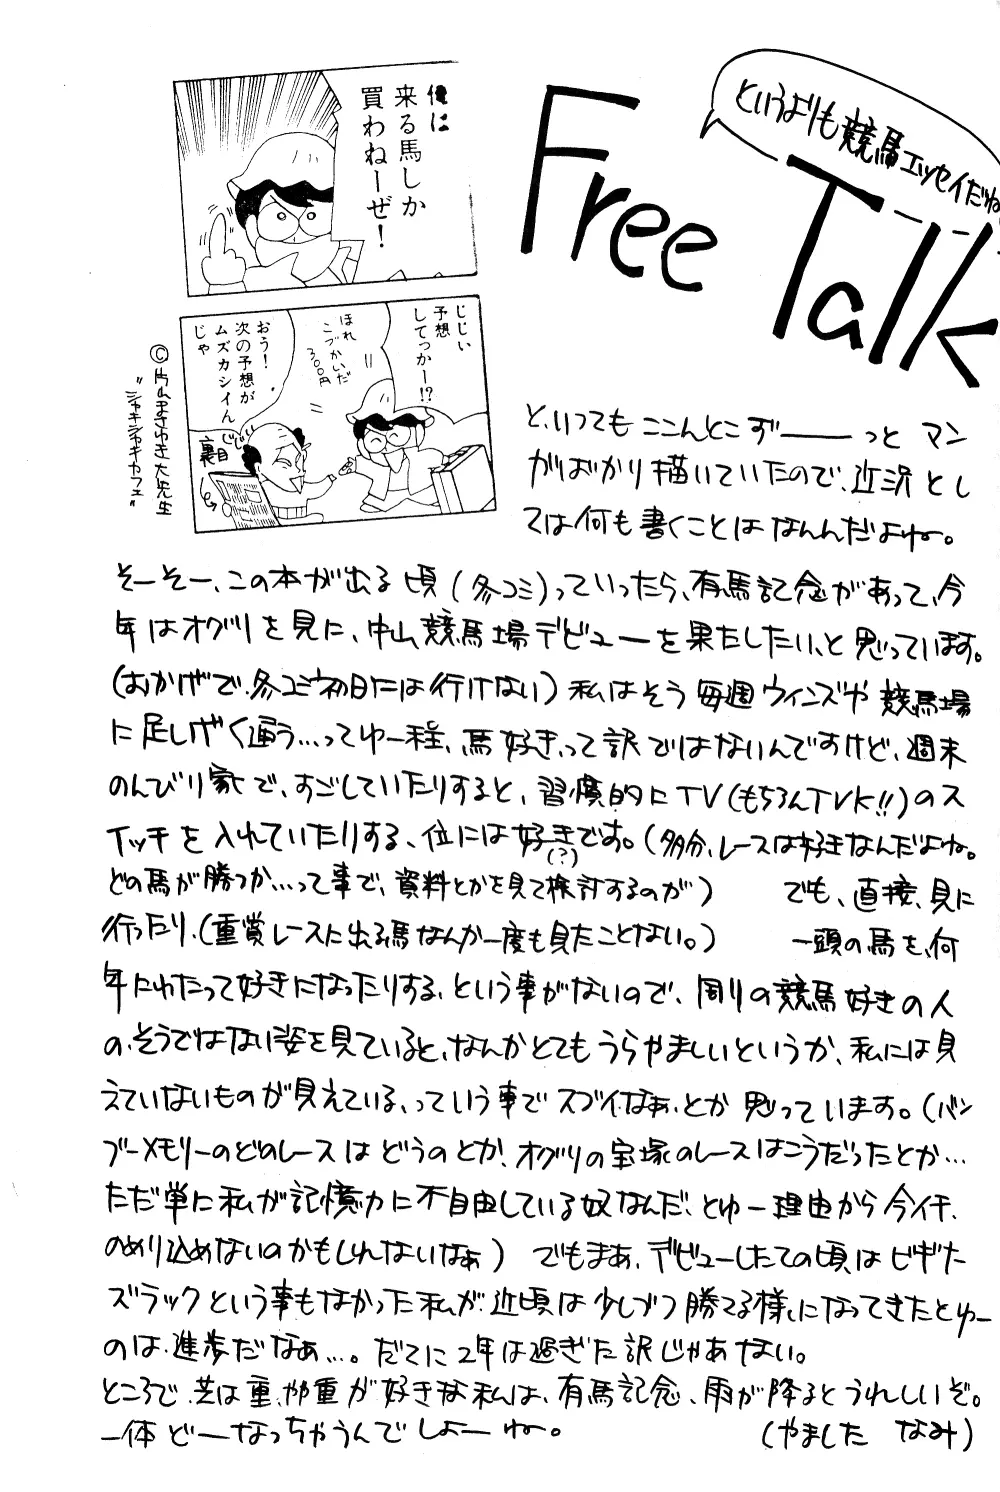 Free Talk
というよりも競馬エッセイだね
俺に
来る馬しか
買わねーぜ!
じじい
予想
してっかー!?
ほれ
こづかいだ
300円
おう!
次の予想が
ムズカシイん
じゃ
裏目
©片山まさゆき大先生
"シャキシャキカフェ"
と、いっても ここんとこ ずーーーっと マン
がばかり描いていたので、近況とし
ては何も書くことはなんんだよね。
そーそー、この本が出る頃(冬コミ)っていったら、有馬記念があって、今
年はオグリを見に、中山競馬場デビューを果たしたい、と思っています。
(おかげで、冬コミ初日には行けない) 私はそう毎週ウィンズや競馬場
に足しげく通う…ってゆー程、馬好き、って訳ではないんですけど、週末
のんびり家で、すごしていたりすると、習慣的にTV(もちろんTVK!!)のス
イッチを入れていたりする、位には好きです。(多分、レースは好きなんだよね。
(?)
どの馬が勝つか…って事で、資料とかを見て検討するのが) でも、直接、見に
行ったり、(重賞レースに出る馬なんか一度も見たことない。) 一頭の馬を、何
年にわたって好きになったりする、という事がないので、周りの競馬好きの人
の、そうではない姿を見ていると、なんかとてもうらやましいというか、私には見
えていないものが見えている、っていう事でスゴイなぁ、とか思っています。(バン
ブーメモリーのどのレースはどうのとか、オグリの宝塚のレースはこうだったとか…
ただ単に私が記憶力に不自由している奴なんだ、とゆー理由から今イチ、
のめり込めないのかもしれないなぁ) でもまぁ、デビューしたての頃はビギナー
ズラックという事もなかった私が、近頃は少しづつ勝てる様になってきたとゆー
のは、進歩だなぁ…。だてに2年は過ぎた訳じゃあない。
ところで、芝は重、やや重が好きな私は、有馬記念、雨が降るとうれしいぞ。
一体どーなっちゃうんでしょーね。 (やました なみ)